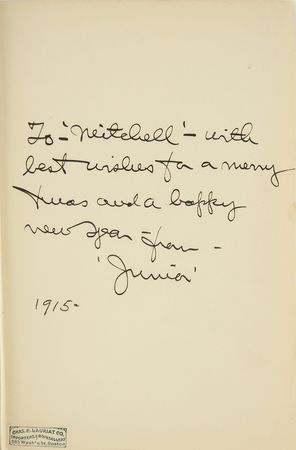 To - 'Mitchell' - with
best wishes for a merry
Xmas and a happy
new year - from -
'Junior'
1915-
CHAS. E. LAURIAT CO.
IMPORTERS & BOOKSELLERS
385 Wash'n St. Boston